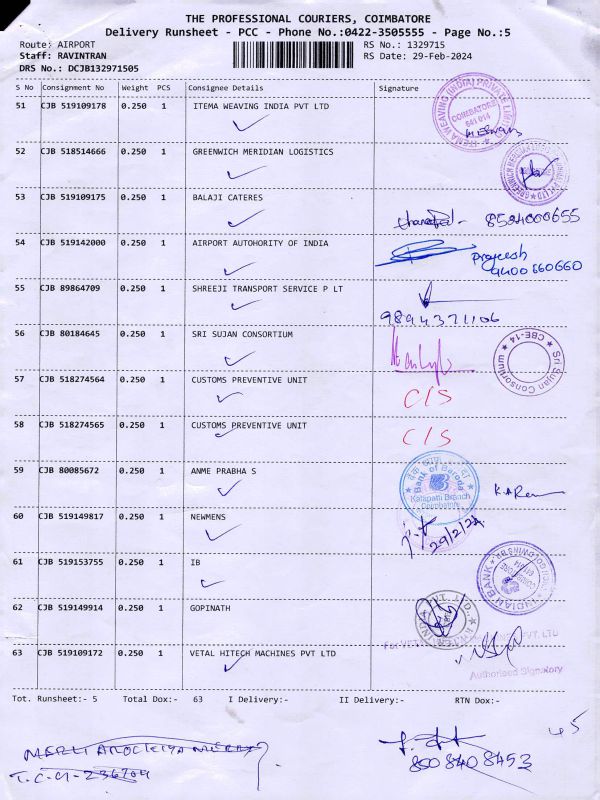 THE PROFESSIONAL COURIERS, COIMBATORE
Delivery Runsheet - PCC - Phone No.:0422-3505555 - Page No.:5
Route: AIRPORT RS No.: 1329715
Staff: RAVINTRAN RS Date: 29-Feb-2024
DRS No.: DCJB132971505
S No Consignment No Weight PCS Consignee Details Signature
51 CJB 519109178 0.250 1 ITEMA WEAVING INDIA PVT LTD
ITEMA WEAVING (INDIA) PRIVATE LIMITED
COIMBATORE
641 014
52 CJB 518514666 0.250 1 GREENWICH MERIDIAN LOGISTICS
53 CJB 519109175 0.250 1 BALAJI CATERES
8524000655
54 CJB 519142000 0.250 1 AIRPORT AUTOHORITY OF INDIA
Prajeesh
4400660660
55 CJB 89864709 0.250 1 SHREEJI TRANSPORT SERVICE P LT
9894371106
56 CJB 80184645 0.250 1 SRI SUJAN CONSORTIUM
Sri Sujan Consortium
CBE-14
57 CJB 518274564 0.250 1 CUSTOMS PREVENTIVE UNIT
C/S
58 CJB 518274565 0.250 1 CUSTOMS PREVENTIVE UNIT
C/S
59 CJB 80085672 0.250 1 ANME PRABHA S
Bank of Baroda
Kalapatti Branch
Coimbatore
60 CJB 519149817 0.250 1 NEWMENS
29/2/24
61 CJB 519153755 0.250 1 IB
INDIAN BANK
62 CJB 519149914 0.250 1 GOPINATH
63 CJB 519109172 0.250 1 VETAL HITECH MACHINES PVT LTD
PVT. LTD
Authorised Signatory
Tot. Runsheet:- 5 Total Dox:- 63 I Delivery:- II Delivery:- RTN Dox:-
45
8008408453